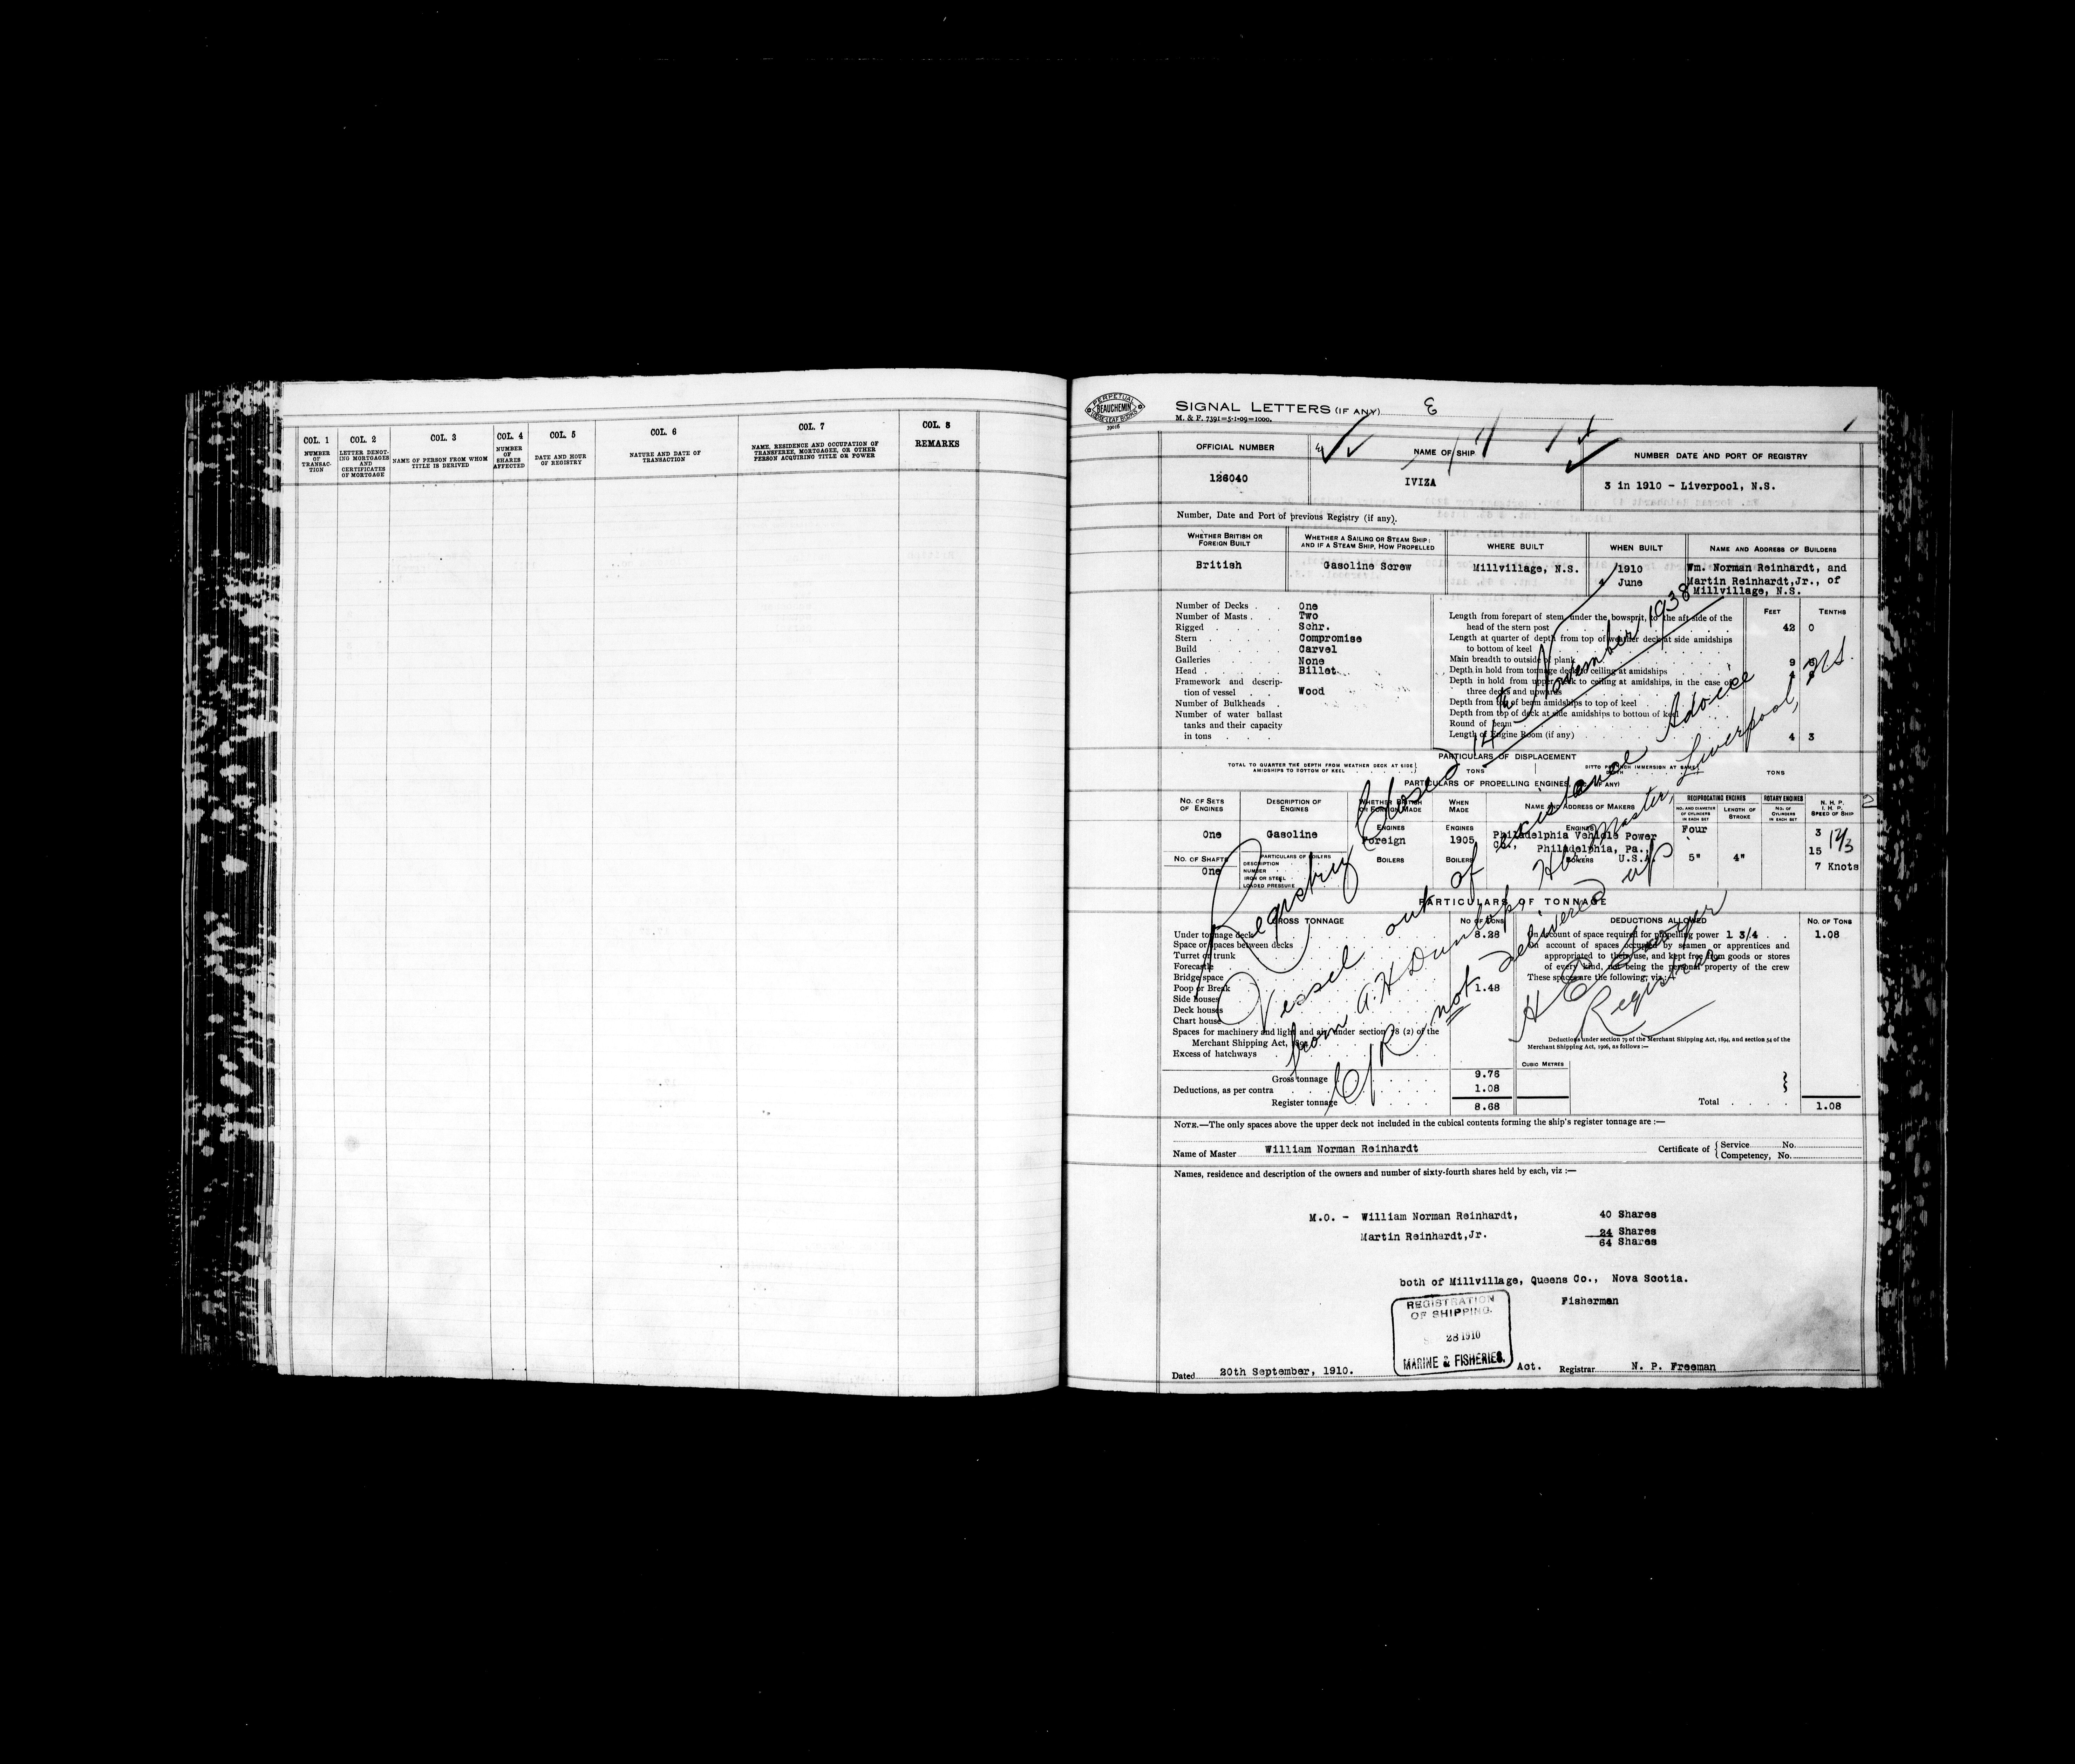 COL. 1
NUMBER OF TRANSAC-TION
COL. 2
LETTER DENOT-ING MORTGAGES AND CERTIFICATES OF MORTGAGE
COL. 3
NAME OF PERSON FROM WHOM TITLE IS DERIVED
COL. 4
NUMBER OF SHARES AFFECTED
COL. 5
DATE AND HOUR OF REGISTRY
COL. 6
NATURE AND DATE OF TRANSACTION
COL. 7
NAME, RESIDENCE AND OCCUPATION OF TRANSFEREE, MORTGAGEE, OR OTHER PERSON ACQUIRING TITLE OR POWER
COL. 8
REMARKS
PERPETUAL
BEAUCHEMIN
LOOSE LEAF BOOKS
SIGNAL LETTERS (IF ANY)
M. & F. 7391=5-1-09=1000.
OFFICIAL NUMBER
NAME OF SHIP
NUMBER DATE AND PORT OF REGISTRY
126040
IVIZA
3 in 1910 - Liverpool, N.S.
Number, Date and Port of previous Registry (if any).
WHETHER BRITISH OR FOREIGN BUILT
WHETHER A SAILING OR STEAM SHIP; AND IF A STEAM SHIP, HOW PROPELLED
WHERE BUILT
WHEN BUILT
NAME AND ADDRESS OF BUILDERS
British
Gasoline Screw
Millvillage, N.S.
1910
June
Wm. Norman Reinhardt, and
Martin Reinhardt,Jr., of
Millvillage, N.S.
Number of Decks . . One
Number of Masts . . Two
Rigged . . . Schr.
Stern . . . Compromise
Build . . . Carvel
Galleries . . . None
Head . . . Billet
Framework and descrip-
tion of vessel . . Wood
Number of Bulkheads .
Number of water ballast
tanks and their capacity
in tons . . .
FEET TENTHS
Length from forepart of stem, under the bowsprit, to the aft side of the
head of the stern post 42 0
Length at quarter of depth from top of weather deck at side amidships
to bottom of keel
Main breadth to outside of plank 9
Depth in hold from tonnage deck to ceiling at amidships
Depth in hold from upper deck to ceiling at amidships, in the case of
three decks and upwards
Depth from top of beam amidships to top of keel
Depth from top of deck at side amidships to bottom of keel
Round of beam
Length of Engine Room (if any) 4 3
PARTICULARS OF DISPLACEMENT
TOTAL TO QUARTER THE DEPTH FROM WEATHER DECK AT SIDE AMIDSHIPS TO BOTTOM OF KEEL
TONS
DITTO PER INCH IMMERSION AT SAME DEPTH
TONS
PARTICULARS OF PROPELLING ENGINES, &C. (IF ANY)
NO. OF SETS OF ENGINES
DESCRIPTION OF ENGINES
WHETHER BRITISH OR FOREIGN MADE
WHEN MADE
NAME AND ADDRESS OF MAKERS
RECIPROCATING ENGINES
NO. AND DIAMETER OF CYLINDERS IN EACH SET
LENGTH OF STROKE
ROTARY ENGINES
NO. OF CYLINDERS IN EACH SET
N. H. P.
I. H. P.
SPEED OF SHIP
One
Gasoline
ENGINES
Foreign
ENGINES
1905
ENGINES
Philadelphia Vehicle Power
Co., Philadelphia, Pa.,
U.S.A.
Four
5"
4"
3
15
7 Knots
NO. OF SHAFTS
One
PARTICULARS OF BOILERS
DESCRIPTION
NUMBER
IRON OR STEEL
LOADED PRESSURE
BOILERS
BOILERS
BOILERS
PARTICULARS OF TONNAGE
GROSS TONNAGE
NO OF TONS
DEDUCTIONS ALLOWED
NO. OF TONS
Under tonnage deck 8.28
Space or spaces between decks
Turret or trunk
Forecastle
Bridge space
Poop or Break 1.48
Side houses
Deck houses
Chart house
Spaces for machinery and light and air, under section 78 (2) of the
Merchant Shipping Act, 1894
Excess of hatchways
Gross tonnage 9.76
Deductions, as per contra 1.08
Register tonnage 8.68
On account of space required for propelling power 1 3/4 . . 1.08
On account of spaces occupied by seamen or apprentices and
appropriated to their use, and kept free from goods or stores
of every kind, not being the personal property of the crew
These spaces are the following, viz:
Deductions under section 79 of the Merchant Shipping Act, 1894, and section 54 of the
Merchant Shipping Act, 1906, as follows :—
CUBIC METRES
Total . . . . 1.08
Registry Closed 14th November 1938
Vessel out of existence Advice
from A. H Dunlop, Hbr Master, Liverpool, N.S.
C/R not delivered up
Registrar
NOTE.—The only spaces above the upper deck not included in the cubical contents forming the ship's register tonnage are :—
Name of Master William Norman Reinhardt
Certificate of { Service No.
Competency, No.
Names, residence and description of the owners and number of sixty-fourth shares held by each, viz :—
M.O. - William Norman Reinhardt, 40 Shares
Martin Reinhardt,Jr. 24 Shares
64 Shares
both of Millvillage, Queens Co., Nova Scotia.
Fisherman
REGISTRATION
OF SHIPPING.
28 1910
MARINE & FISHERIES.
Dated 20th September, 1910.
Act. Registrar N. P. Freeman